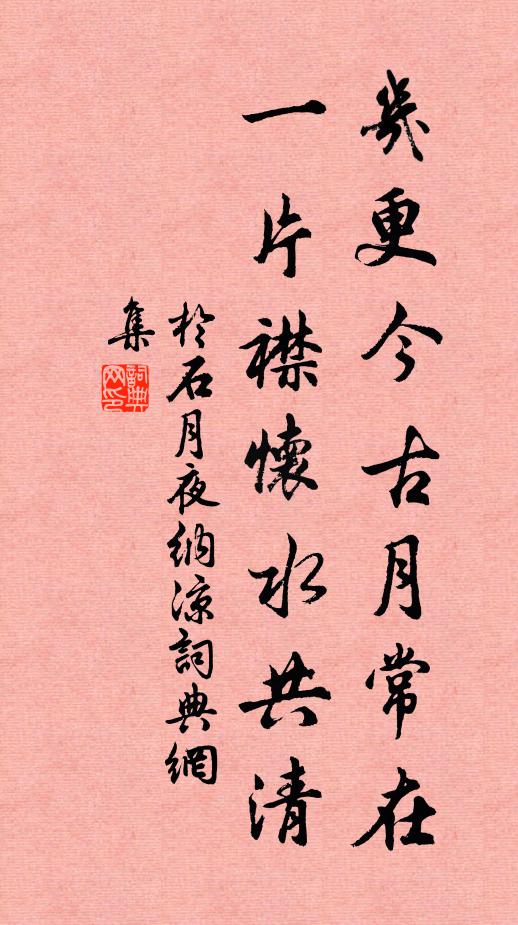 幾更今古月常在
一片襟懷水共清
於石月夜納涼詞典網
集
詞典
网印